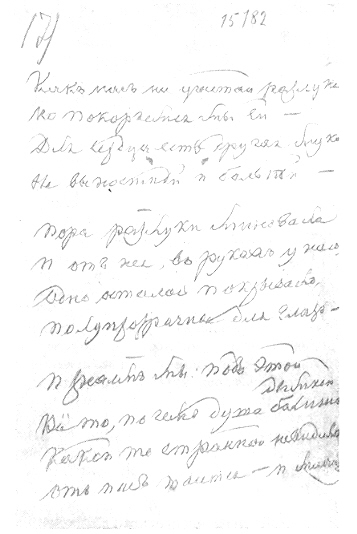 17)
15/82
Какъ насъ ни угнетай разлука
Но покоряемся мы ей —
Для сердца есть другая мука
Невыносимѣй и больнѣй —
Пора разлуки миновала
И отъ нея, въ рукахъ у насъ
Одно осталось покрывало
Полупрозрачное для глазъ —
И знаемъ мы: подъ этой
дымкой
Всё то, по чемъ душа болитъ
Какой-то странной невидимкой
отъ насъ таится — и молчитъ